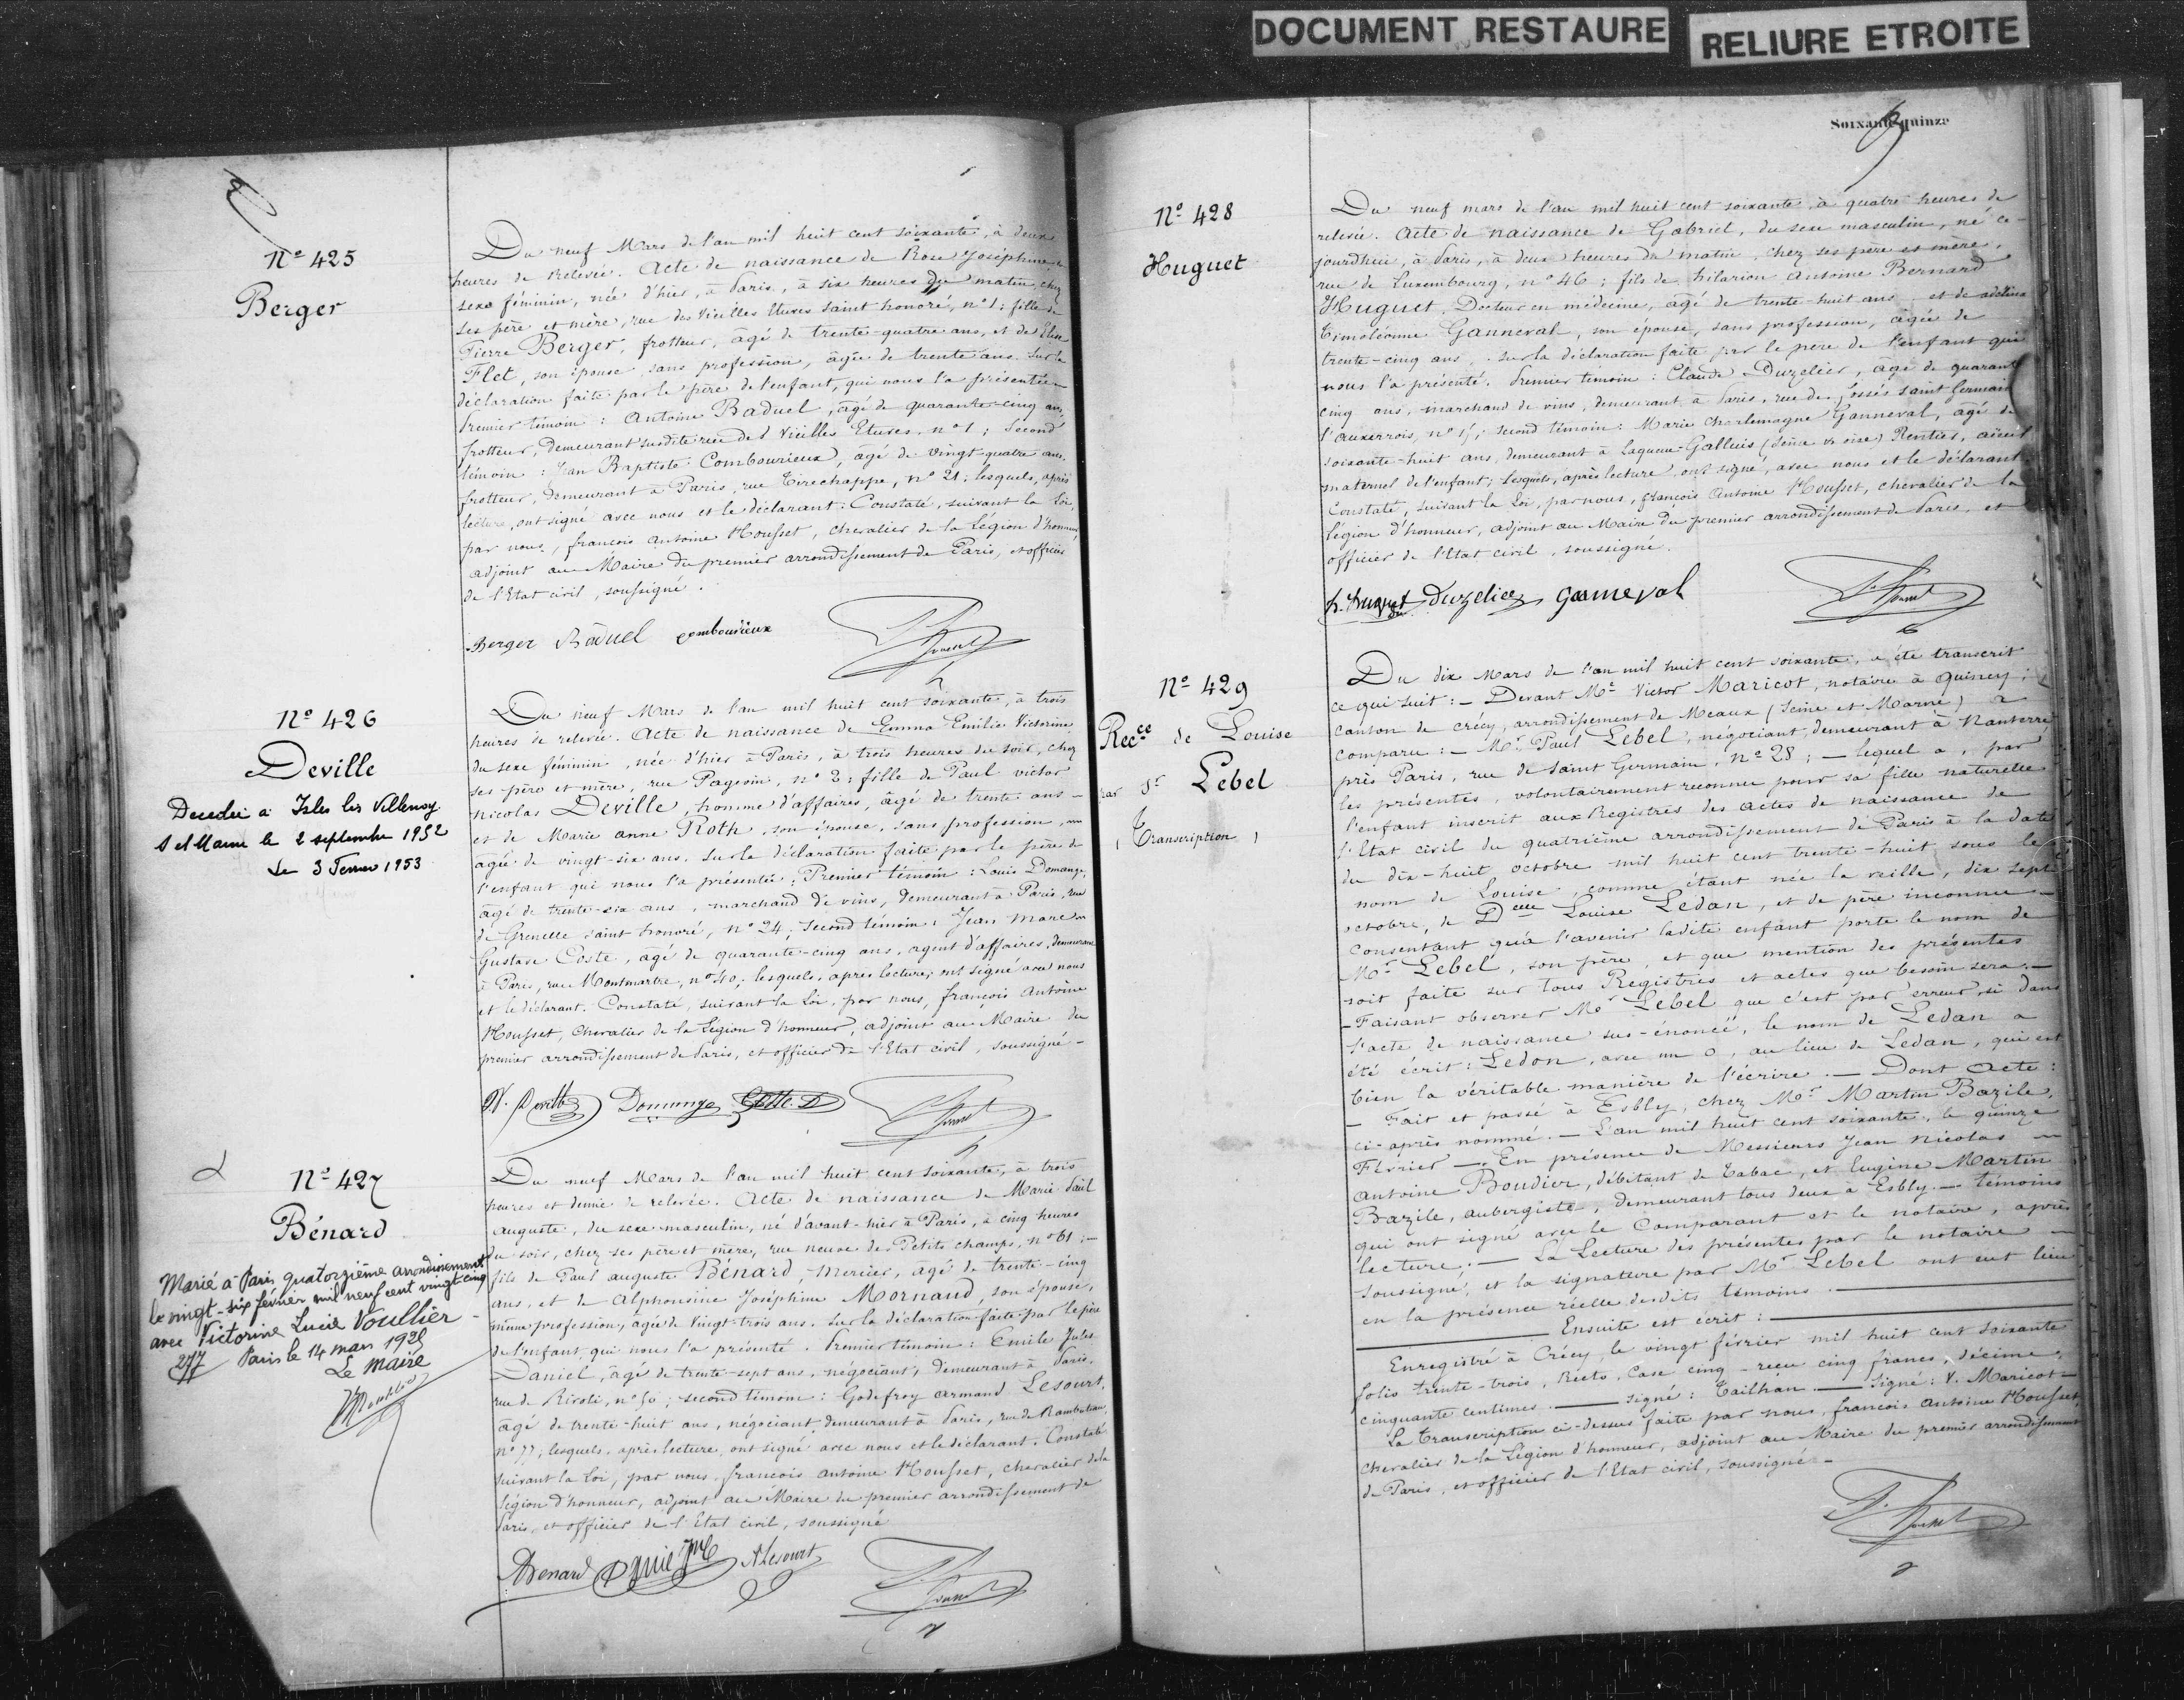 DOCUMENT RESTAURE
RELIURE ETROITE
Nº 425
Berger
Du neuf Mars de l'an mil huit cent soixante, à deux
heures de relevée. Acte de naissance de Rose Joséphine, du
sexe féminin, née d'hier, à Paris, à six heures du matin, chez
ses père et mère, rue des Vieilles Etuves saint honoré, nº 1; fille de
Pierre Berger, frotteur, âgé de trente-quatre ans, et de Elise
Flet, son épouse sans profession, âgée de trente ans. Sur la
déclaration faite par le père de l'enfant, qui nous l'a présentée
Premier témoin : Antoine Baduel, âgé de quarante-cinq ans,
frotteur, demeurant susdite rue des Vieilles Etuves, nº 1; Second
témoin : Jean Baptiste Combourieux, âgé de vingt quatre ans,
frotteur, demeurant à Paris, rue Tirechappe, nº 21; lesquels, après
lecture, ont signé avec nous et le déclarant. Constaté, suivant la Loi,
par nous, françois antoine Housset, chevalier de la Légion d'honneur,
adjoint au Maire du premier arrondissement de Paris, et officier
de l'Etat civil, soussigné.
Berger Baduel combourieux
Nº 426
Deville
Decedée à Isles les Villenoy
S et Marne le 2 septembre 1952
Le 3 Fevrier 1953
Du neuf Mars de l'an mil huit cent soixante, à trois
heures de relevée. Acte de naissance de Emma Emilie Victorine
du sexe féminin, née d'hier à Paris, à trois heures du soir, chez
ses père et mère, rue Pagevin, nº 2; fille de Paul victor
nicolas Deville, homme d'affaires, âgé de trente ans -
et de Marie anne Roth, son épouse, sans profession,
âgée de vingt-six ans. Sur la déclaration faite par le père de
l'enfant qui nous l'a présentée. Premier témoin : Louis Domange,
âgé de trente-six ans, marchand de vins, demeurant à Paris, rue
de Grenelle saint honoré, nº 24; second témoin : Jean Marc
Gustave Coste, âgé de quarante-cinq ans, agent d'affaires, demeurant
à Paris, rue Montmartre, nº 40; lesquels, après lecture, ont signé avec nous
et le déclarant. Constaté, suivant la Loi, par nous, françois Antoine
Housset, Chevalier de la Légion d'honneur, adjoint au Maire du
premier arrondissement de Paris, et officier de l'Etat civil, soussigné -
Deville Domange Coste
Nº 427
Bénard
Marié à Paris quatorzième arrondissement
le vingt-six février mil neuf cent vingt cinq
avec Victorine Lucie Voullier -
277 Paris le 14 mars 1925
Le maire
Du neuf Mars de l'an mil huit cent soixante, à trois
heures et demie de relevée. Acte de naissance de Marie Paul
auguste, du sexe masculin, né d'avant-hier à Paris, à cinq heures
du soir, chez ses père et mère, rue neuve des Petits champs, nº 61 : -
fils de Paul auguste Bénard, mercier, âgé de trente-cinq
ans, et de Alphonsine Joséphine Mornand, son épouse,
même profession, âgée de Vingt trois ans. Sur la déclaration faite par le père
de l'enfant qui nous l'a présenté. Premier témoin : Emile Jules
Daniel, âgé de trente-sept ans, négociant, demeurant à Paris,
rue de Rivoli, nº 50; second témoin : Godefroy armand Lesourt,
âgé de trente-huit ans, négociant, demeurant à Paris, rue de Rambuteau,
nº 77; lesquels, après lecture, ont signé avec nous et le déclarant. Constaté
suivant la Loi, par nous, françois antoine Housset, chevalier de la
Légion d'honneur, adjoint au Maire du premier arrondissement de
Paris, et officier de l'Etat civil, soussigné
Benard Lesourt
Soixante quinze
Nº 428
Huguet
Du neuf mars de l'an mil huit cent soixante à quatre heures de
relevée. Acte de naissance de Gabriel, du sexe masculin, né ce-
jourdhui, à Paris, à deux heures du matin, chez ses père et mère,
rue de Luxembourg, nº 46; fils de hilarion antoine Bernard
Huguet, Docteur en médecine, âgé de trente-huit ans et de adeline
Timoléonne Ganneval, son épouse, sans profession, âgée de
trente-cinq ans. Sur la déclaration faite par le père de l'enfant qui
nous l'a présenté. Premier témoin : Claude Duzelier, âgé de quarante
cinq ans, marchand de vins, demeurant à Paris, rue des fossés saint Germain
l'auxerrois, nº 15; second témoin : Marie Charlemagne Ganneval, âgé de
soixante-huit ans, demeurant à Laqueue-Galluis (Seine & oise) Rentier, aïeul
maternel de l'enfant; lesquels, après lecture, ont signé, avec nous et le déclarant.
Constaté, suivant la Loi, par nous, françois Antoine Housset, chevalier de la
légion d'honneur, adjoint au Maire du premier arrondissement de Paris, et
officier de l'Etat civil, soussigné.
h. huguet Duzelier ganneval
Nº 429
Recce de Louise
par Sr Lebel
(Transcription)
Du dix Mars de l'an mil huit cent soixante, a été transcrit
ce qui suit : - Devant Me Victor Maricot, notaire à Quincy,
canton de crécy, arrondissement de Meaux (Seine et Marne) a
comparu : - Mr Paul Lebel, négociant, demeurant à Nanterre
près Paris, rue de saint Germain, nº 28; - lequel a, par
les présentes, volontairement reconnu pour sa fille naturelle
l'enfant inscrit aux Registres des actes de naissance de
l'Etat civil du quatrième arrondissement de Paris à la date
du dix-huit octobre mil huit cent trente-huit sous le
nom de Louise, comme étant née la veille, dix sept
octobre, de Delle Louise Ledan, et de père inconnu -
Consentant qu'à l'avenir ladite enfant porte le nom de
Mr Lebel, son père, et que mention des présentes
soit faite sur tous Registres et actes que besoin sera. -
- Faisant observer Mr Lebel que c'est par erreur, si dans
l'acte de naissance sus-énoncé, le nom de Ledan a
été écrit : Ledon, avec un o, au lieu de Ledan, qui est
bien la véritable manière de l'écrire. - Dont acte :
- Fait et passé à Esbly, chez Mr Martin Bazile,
ci-après nommé. - L'an mil huit cent soixante, le quinze
Février -. En présence de Messieurs Jean nicolas
antoine Boudier, débitant de Tabac, et Eugène Martin
Bazile, aubergiste, demeurant tous deux à Esbly - témoins
qui ont signé avec le Comparant et le notaire, après
lecture. - La Lecture des présentes par le notaire
soussigné, et la signature par Mr Lebel ont eut lieu
en la présence réelle desdits témoins.
Ensuite est écrit :
Enregistré à Crécy, le vingt février mil huit cent soixante
folio trente-trois, Recto, Case cinq - reçu cinq francs, décime,
cinquante centimes. - Signé : Tailhan - Signé : V. Maricot -
La Transcription ci-dessus faite par nous, françois antoine Housset,
chevalier de la Légion d'honneur, adjoint au Maire du premier arrondissement
de Paris, et officier de l'Etat civil, soussigné -